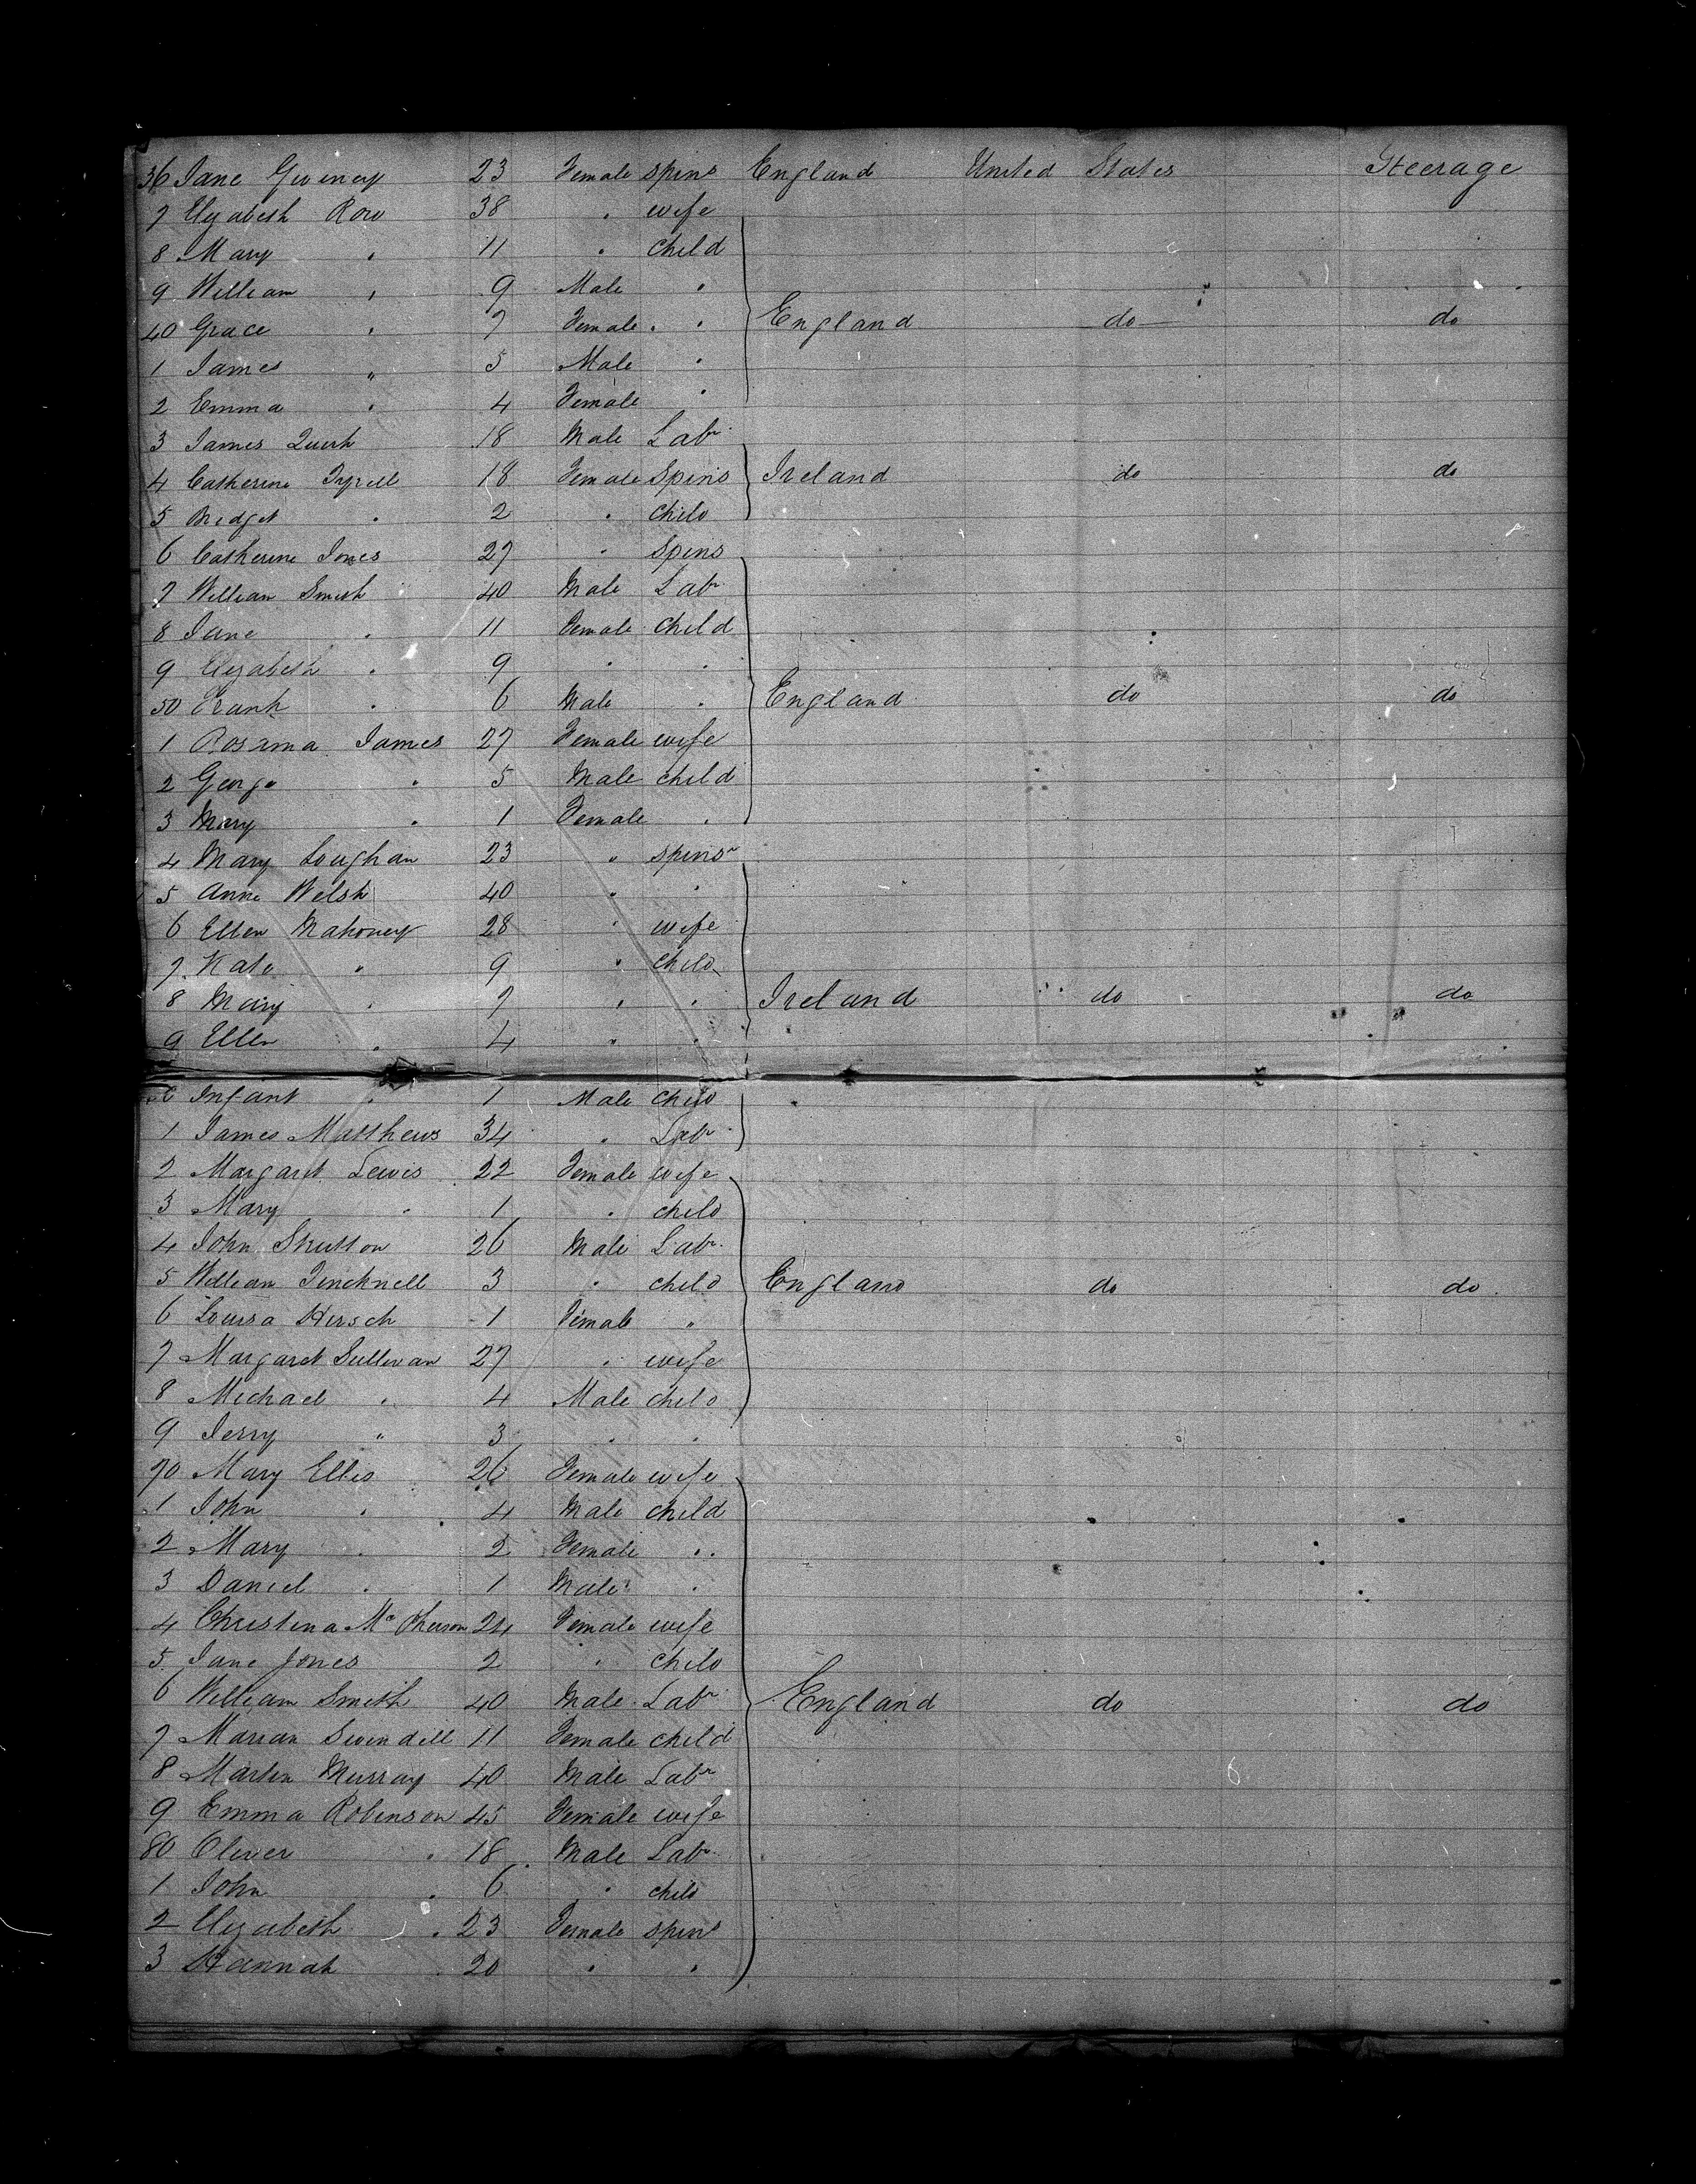 36 Jane Guiney 23 Female spins England United States Steerage
7 Elizabeth Row 38 " wife
8 Mary " 11 " child
9 William " 9 Male "
40 Grace " 7 Female " " England do do
1 James " 5 Male "
2 Emma " 4 Female "
3 James Quirk 18 Male Labr
4 Catherine Tyrell 18 Female Spins Ireland do do
5 Bridget " 2 " child
6 Catherine Jones 27 " Spins
7 William Smith 40 Male Labr
8 Jane " 11 Female child
9 Elizabeth " 9 " "
50 Frank " 6 Male " England do do
1 Rosanna James 27 Female wife
2 George " 5 Male child
3 Mary " 1 Female "
4 Mary Loughan 23 " spinsr
5 Anne Welsh 40 " "
6 Ellen Mahoney 28 " wife
7 Kate " 9 " child
8 Mary " 7 " " Ireland do do
9 Ellen " 4 " "
Infant " 1 Male child
1 James Matthews 34 " Labr
2 Margaret Lewis 22 Female wife
3 Mary " 1 " child
4 John Strutton 26 Male Labr
5 William Tincknell 3 " child England do do
6 Louisa Hirsch 1 Female "
7 Margaret Sullivan 27 " wife
8 Michael " 4 Male child
9 Jerry " 3 " "
70 Mary Ellis 26 Female wife
1 John " 4 Male child
2 Mary " 2 Female "
3 Daniel " 1 Male "
4 Christina McPherson 24 Female wife
5 Jane Jones 2 " child
6 William Smith 40 Male Labr England do do
7 Marian Swindell 11 Female child
8 Martin Murray 40 Male Labr
9 Emma Robinson 45 Female wife
80 Oliver " 18 Male Labr
1 John " 6 " child
2 Elizabeth " 23 Female spins
3 Hannah " 20 " "